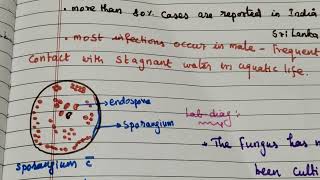 • more than 80% cases are reported in India
Sri Lanka
• most infections occur in male - frequent
contact with stagnant water in aquatic life.
endospore
sporangium
Lab diag:
• The fungus has n
been culti
sporangium c̄